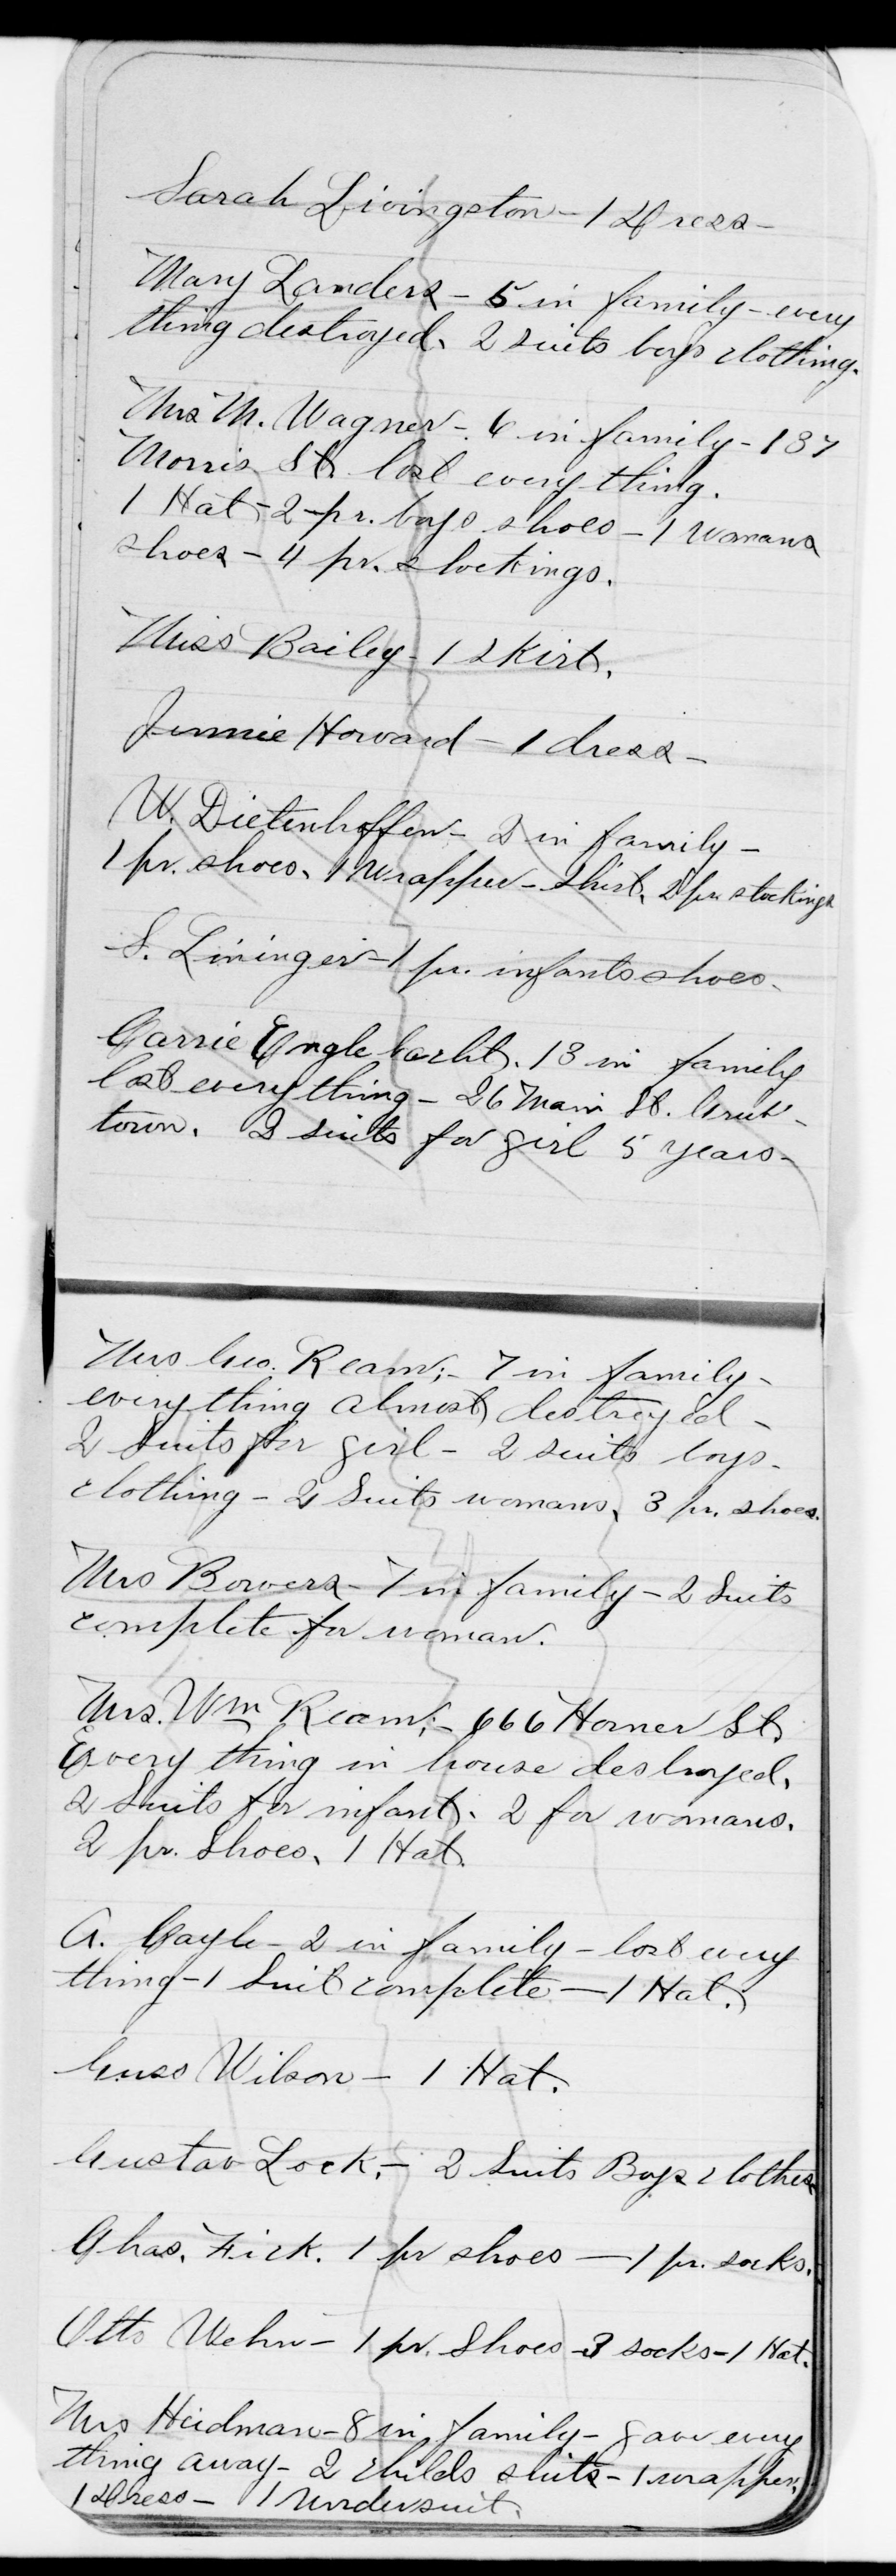 Sarah Livingston - 1 Dress -
Mary Landers - 5 in family - every
thing destroyed. 2 suits boys clothing.
Mrs M. Wagner - 6 in family - 187
Morris St. lost every thing.
1 Hat - 2 pr. boys shoes - 1 womans
shoes - 4 pr. stockings.
Miss Bailey - 1 skirt.
Jennie Howard - 1 dress -
W. Dietenhoffer - 2 in family -
1 pr. shoes, 1 Wrapper - Shirt, 2 pr stockings
S. Lininger - 1 pr. infants shoes.
Carrie Englebacht. 13 in family
lost every thing - 26 Main St.
town. 2 suits for girl 5 years -
Mrs Geo. Ream; - 7 in family -
every thing almost destroyed -
2 Suits for girl - 2 suits boys -
clothing - 2 Suits womans, 3 pr. shoes.
Mrs Bowers - 7 in family - 2 Suits
complete for woman.
Mrs. Wm Ream; - 666 Horner St.
Every thing in house destroyed.
2 Suits for infant. 2 for womans.
2 pr. Shoes, 1 Hat.
A. Gayle - 2 in family - lost every
thing - 1 Suit complete - 1 Hat.
Guss Wilson - 1 Hat.
Gustav Lock, - 2 Suits Boys clothes
Chas. Fick. 1 pr shoes - 1 pr. socks.
Otto Wehn - 1 pr. Shoes - 3 socks - 1 Hat.
Mrs Heidman - 8 in family - gave every
thing away - 2 childs suits - 1 wrapper,
1 Dress - 1 Undersuit.